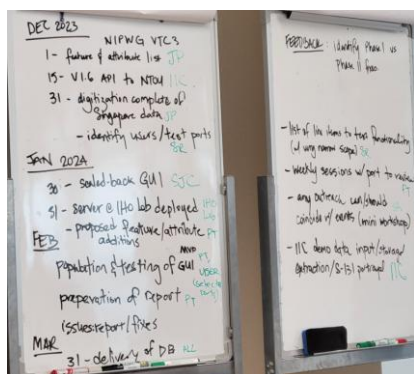 DEC 2023
NIPWG VTC3
1 - feature & attribute list JP
15 - V1.6 API to NTOU IIC
31 - digitization complete of
Singapore data JP
- identify users/test ports
SR
JAN 2024
30 - scaled-back GUI SJC
31 - server @ IHO lab deployed IHO Lab
- proposed feature/attribute PT
additions
FEB
Population & testing of GUI PT
USER
preparation of report PT
issues report/fixes
MAR
31 - delivery of DB ALL
FEEDBACK: identify Phase I vs
Phase II
- list of line items to test functionality
(w/ narrow scope) SR
- Weekly sessions w/ port to review
PT
- any outreach should
coincide w/ events (mini workshop)
- IIC demo data input/storage/
extraction/S-131 portrayal IIC